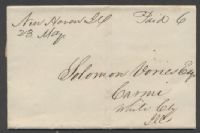 New Haven Ill Paid 6
23 May
Solomon Vories Esq
Carmi
White Cty
Ills